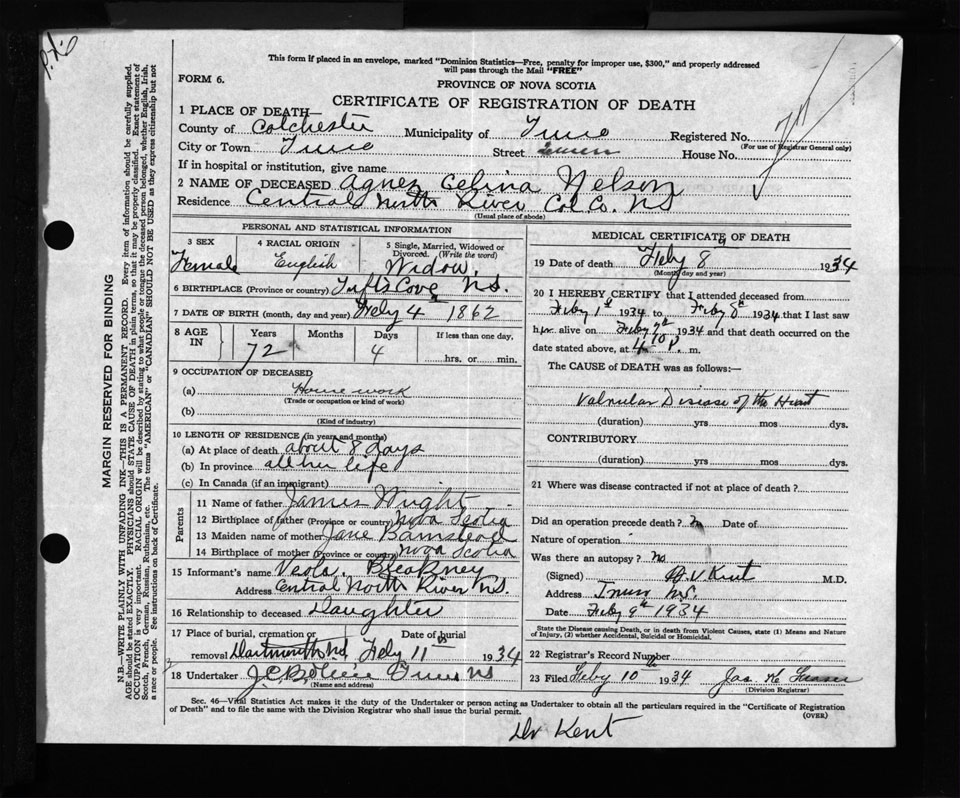 This form if placed in an envelope, marked "Dominion Statistics—Free, penalty for improper use, $300," and properly addressed
will pass through the Mail "FREE"
FORM 6.
PROVINCE OF NOVA SCOTIA
CERTIFICATE OF REGISTRATION OF DEATH
1 PLACE OF DEATH—
County of Colchester Municipality of Truro Registered No.
(For use of Registrar General only)
City or Town Truro Street Queen House No.
If in hospital or institution, give name
2 NAME OF DECEASED Agnes Celina Nelson
Residence Central North River Col. Co. NS
(Usual place of abode)
MARGIN RESERVED FOR BINDING
N.B.—WRITE PLAINLY WITH UNFADING INK—THIS IS A PERMANENT RECORD. Every item of information should be carefully supplied.
AGE should be stated EXACTLY. PHYSICIANS should STATE CAUSE OF DEATH in plain terms, so that it may be properly classified. Exact statement of
OCCUPATION is very important. RACIAL ORIGIN will be described by stating to what people or tongue the deceased person belonged, whether English, Irish,
Scotch, French, German, Russian, Ruthenian, etc. The terms "AMERICAN" or "CANADIAN" SHOULD NOT BE USED as they express citizenship but not
a race or people. See instructions on back of Certificate.
PERSONAL AND STATISTICAL INFORMATION
3 SEX 4 RACIAL ORIGIN 5 Single, Married, Widowed or
Divorced. (Write the word)
Female English Widow.
6 BIRTHPLACE (Province or country) Tufts Cove N.S.
7 DATE OF BIRTH (month, day and year) Feby 4 1862
8 AGE IN Years Months Days If less than one day,
72 4 hrs. or min.
9 OCCUPATION OF DECEASED
(a) House work
(Trade or occupation or kind of work)
(b)
(Kind of industry)
10 LENGTH OF RESIDENCE (in years and months)
(a) At place of death about 8 days
(b) In province all her life
(c) In Canada (if an immigrant)
Parents
11 Name of father James Wright
12 Birthplace of father (Province or country) Nova Scotia
13 Maiden name of mother Jane Bamstead
14 Birthplace of mother (Province or country) Nova Scotia
15 Informant's name Veola Breakney
Address Central North River N.S.
16 Relationship to deceased Daughter
17 Place of burial, cremation or Date of burial
removal Dartmouth Feby 11 1934
18 Undertaker Truro NS
(Name and address)
MEDICAL CERTIFICATE OF DEATH
19 Date of death Feby 8 1934
(Month, day and year)
20 I HEREBY CERTIFY that I attended deceased from
Feby 1st 1934 to Feby 8th 1934 that I last saw
her alive on Feby 7th 1934 and that death occurred on
date stated above, at 4 10 p. m.
The CAUSE of DEATH was as follows:—
Valvular Disease of the Heart
(duration) yrs mos dys.
CONTRIBUTORY
(duration) yrs mos dys.
21 Where was disease contracted if not at place of death?
Did an operation precede death? no Date of
Nature of operation
Was there an autopsy? no
(Signed) Kent M.D.
Address Truro N.S.
Date Feby 9th 1934
State the Disease causing Death, or in death from Violent Causes, state (1) Means and Nature
of Injury, (2) whether Accidental, Suicidal or Homicidal.
22 Registrar's Record Number
23 Filed Feby 10 1934 Jas
(Division Registrar)
Sec. 46—Vital Statistics Act makes it the duty of the Undertaker or person acting as Undertaker to obtain all the particulars required in the "Certificate of Registration
of Death" and to file the same with the Division Registrar who shall issue the burial permit. (OVER)
Dr Kent